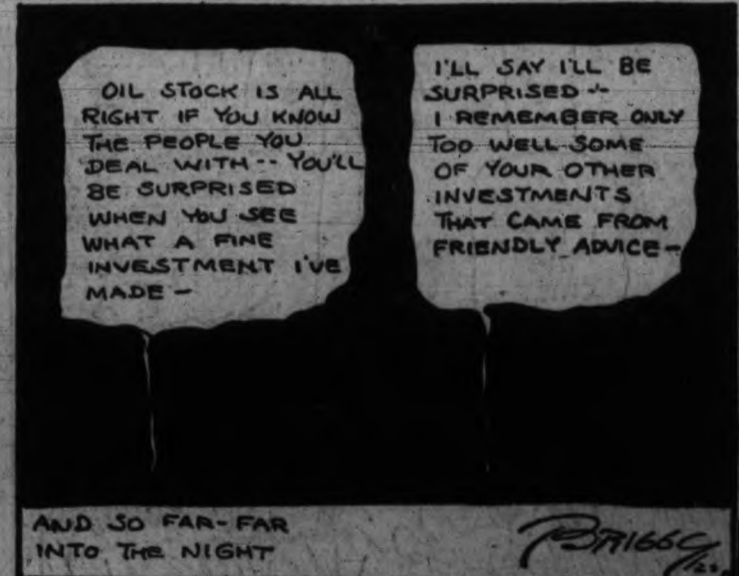 OIL STOCK IS ALL
RIGHT IF YOU KNOW
THE PEOPLE YOU
DEAL WITH -- YOU'LL
BE SURPRISED
WHEN YOU SEE
WHAT A FINE
INVESTMENT I'VE
MADE -
I'LL SAY I'LL BE
SURPRISED --
I REMEMBER ONLY
TOO WELL SOME
OF YOUR OTHER
INVESTMENTS
THAT CAME FROM
FRIENDLY ADVICE -
AND SO FAR-FAR
INTO THE NIGHT
BRIGGS